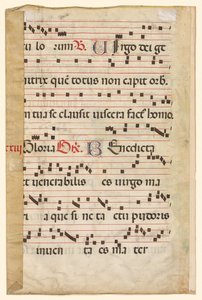 lo rum R. Uirgo dei ge
nitrix que totus non capit orb.
in tua se clausit uiscera fact homo
Gloria Ox. Benedicta
et uenerabilis es uirgo ma
a que si ne ta ctu pudoris
inuen ta es ma ter